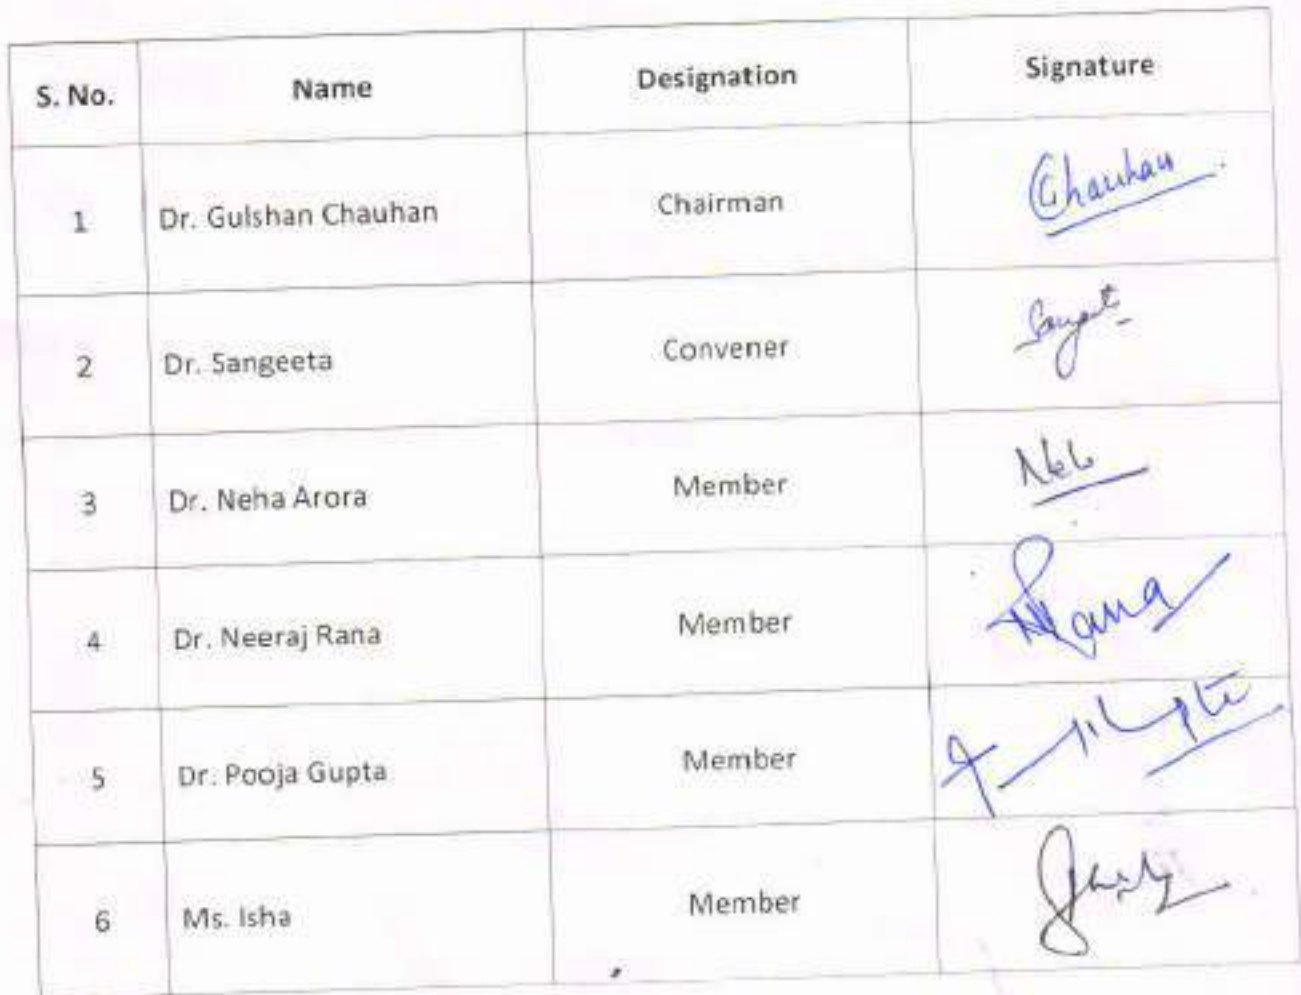 S. No. Name Designation Signature
1 Dr. Gulshan Chauhan Chairman Chauhan
2 Dr. Sangeeta Convener
3 Dr. Neha Arora Member
4 Dr. Neeraj Rana Member Rana
5 Dr. Pooja Gupta Member
6 Ms. Isha Member